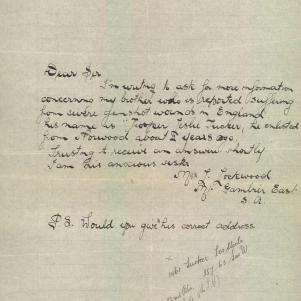 Dear Sir
I'm writing to ask for more information
concerning my brother who is reported suffering
from severe gunshot wounds in England
his name is Trooper Leslie Tucker, he enlisted
from Norwood about 2 years ago
Trusting to receive an answer shortly
I am his anxious sister
Mrs F. Lockwood
Mt Gambier East
S. A.
P S. Would you give his correct address
1061 Tucker Leslie